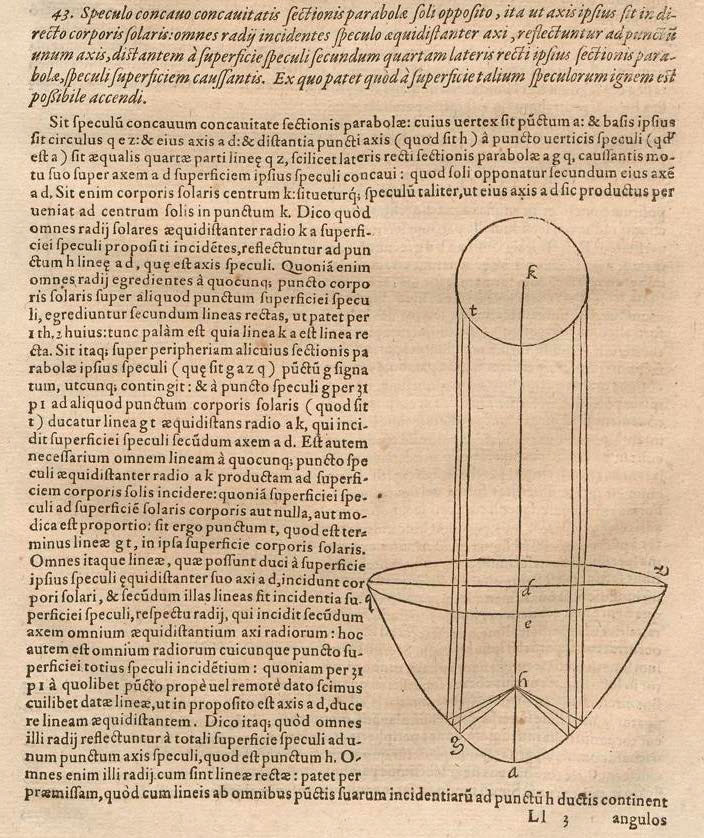 43. Speculo concauo concauitatis ſectionis parabolæ ſoli oppoſito, ita ut axis ipſius ſit in di-
recto corporis ſolaris: omnes radij incidentes ſpeculo æquidiſtanter axi, reflectuntur ad punctũ
unum axis, diſtantem à ſuperficie ſpeculi ſecundum quartam lateris recti ipſius ſectionis para-
bolæ, ſpeculi ſuperficiem cauſſantis. Ex quo patet quòd à ſuperficie talium ſpeculorum ignem eſt
poſsibile accendi.
Sit ſpeculũ concauum concauitate ſectionis parabolæ: cuius uertex ſit pũctum a: & baſis ipſius
ſit circulus q e z: & eius axis a d: & diſtantia puncti axis (quod ſit h) à puncto uerticis ſpeculi (qđ
eſt a) ſit æqualis quartæ parti lineę q z, ſcilicet lateris recti ſectionis parabolæ a g q, cauſſantis mo-
tu ſuo ſuper axem a d ſuperficiem ipſius ſpeculi concaui: quod ſoli opponatur ſecundum eius axẽ
a d. Sit enim corporis ſolaris centrum k: ſitueturq́; ſpeculũ taliter, ut eius axis a d ſic productus per
ueniat ad centrum ſolis in punctum k. Dico quòd
omnes radij ſolares æquidiſtanter radio k a ſuperfi-
ciei ſpeculi propoſiti incidẽtes, reflectuntur ad pun
ctum h lineę a d, quę eſt axis ſpeculi. Quoniã enim
omnes radij egredientes à quocunq; puncto corpo
ris ſolaris ſuper aliquod punctum ſuperficiei ſpecu
li, egrediuntur ſecundum lineas rectas, ut patet per
1 th. 2 huius: tunc palàm eſt quia linea k a eſt linea re
cta. Sit itaq; ſuper peripheriam alicuius ſectionis pa
rabolæ ipſius ſpeculi (quę ſit g a z q) pũctũ g ſigna
tum, utcunq; contingit: & à puncto ſpeculi g per 31
p 1 ad aliquod punctum corporis ſolaris (quod ſit
t) ducatur linea g t æquidiſtans radio a k, qui inci-
dit ſuperficiei ſpeculi ſecũdum axem a d. Eſt autem
neceſſarium omnem lineam à quocunq; puncto ſpe
culi æquidiſtanter radio a k productam ad ſuperfi-
ciem corporis ſolis incidere: quoniã ſuperficiei ſpe-
culi ad ſuperficiẽ ſolaris corporis aut nulla, aut mo-
dica eſt proportio: ſit ergo punctum t, quod eſt ter-
minus lineæ g t, in ipſa ſuperficie corporis ſolaris.
Omnes itaque lineæ, quæ poſſunt duci à ſuperficie
ipſius ſpeculi ęquidiſtanter ſuo axi a d, incidunt cor
pori ſolari, & ſecũdum illas lineas fit incidentia ſu-
perficiei ſpeculi, reſpectu radij, qui incidit ſecũdum
axem omnium æquidiſtantium axi radiorum: hoc
autem eſt omnium radiorum cuicunque puncto ſu-
perficiei totius ſpeculi incidẽtium: quoniam per 31
p 1 à quolibet pũcto propè uel remotè dato ſcimus
cuilibet datæ lineæ, ut in propoſito eſt axis a d, duce
re lineam æquidiſtantem. Dico itaq; quòd omnes
illi radij reflectuntur à totali ſuperficie ſpeculi ad u-
num punctum axis ſpeculi, quod eſt punctum h. O-
mnes enim illi radij cum ſint lineæ rectæ: patet per
præmiſſam, quòd cum lineis ab omnibus pũctis ſuarum incidentiarũ ad punctũ h ductis continent
Ll 3 angulos
k
t
z
d
q
e
h
g
a